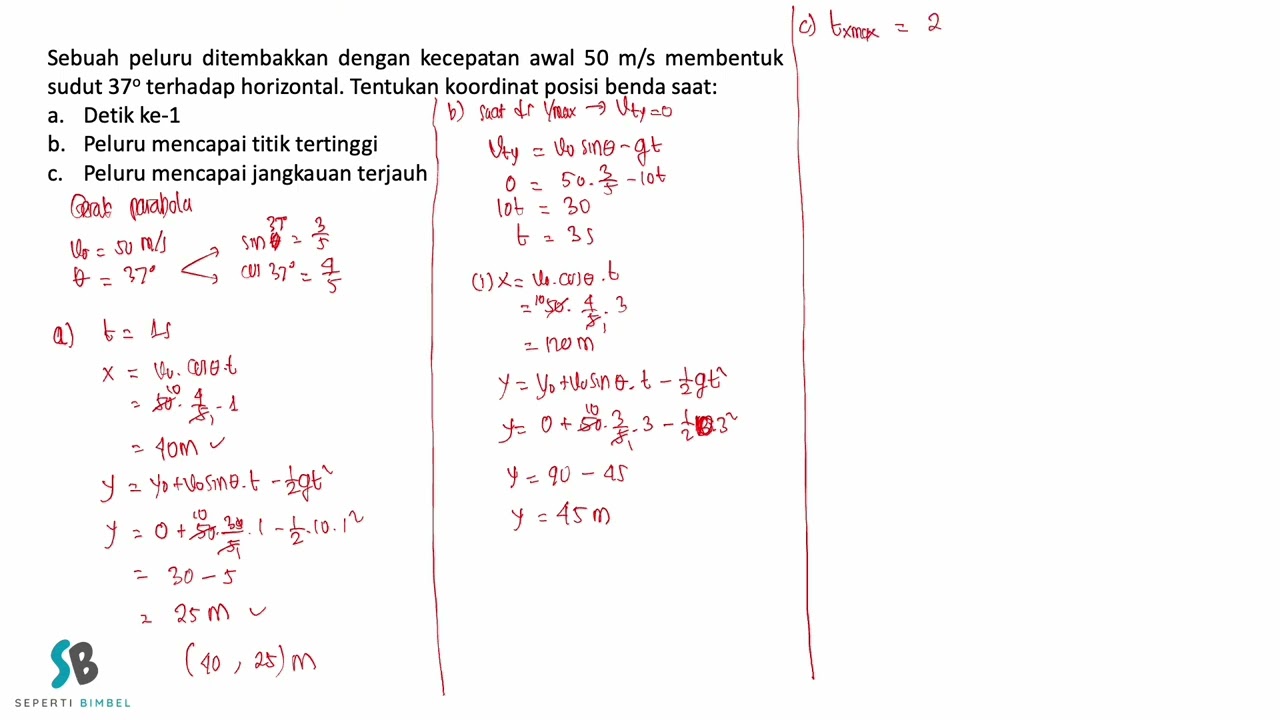 Sebuah peluru ditembakkan dengan kecepatan awal 50 m/s membentuk
sudut 37° terhadap horizontal. Tentukan koordinat posisi benda saat:
a. Detik ke-1
b. Peluru mencapai titik tertinggi
c. Peluru mencapai jangkauan terjauh
Gerak parabola
v₀ = 50 m/s
θ = 37°
sin 37° = 3/5
cos 37° = 4/5
a) t = 1s
x = v₀.cosθ.t
= 50. 4/5 . 1
10 1
= 40m ✓
y = y₀+v₀sinθ.t – ½gt²
y = 0 + 50. 3/5 . 1 – ½.10.1²
10 1
= 30 – 5
= 25 m ✓
(40 , 25) m
b) saat di Ymax → Vty=0
Vty = v₀ sinθ – gt
0 = 50. 3/5 – 10t
10t = 30
t = 3s
(1) x = v₀.cosθ.t
= 50. 4/5 . 3
10 1
= 120 m
y = y₀+v₀sinθ.t – ½gt²
y = 0 + 50. 3/5 . 3 – ½ 3²
10 1
y = 90 – 45
y = 45 m
c) txmax = 2
SB
SEPERTI BIMBEL